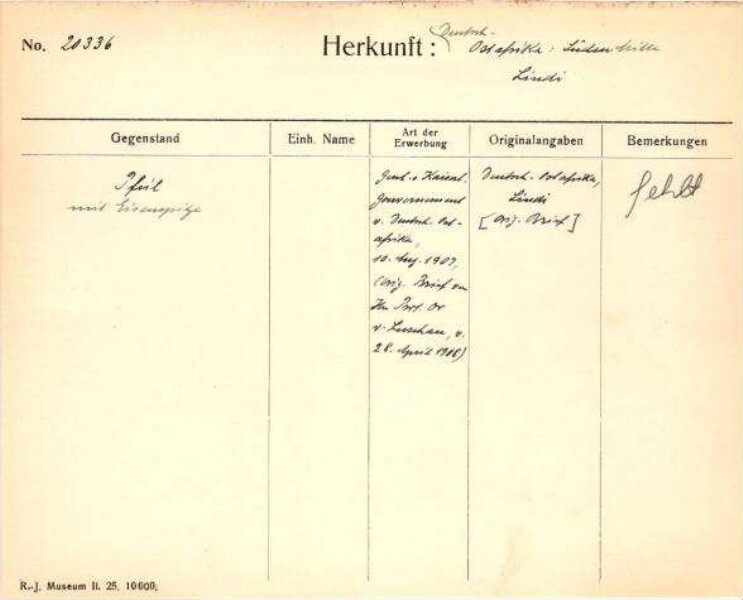 No. 20336
Herkunft: Deutsch-
Ostafrika: Süden Mitte
Lindi
Gegenstand
Einh. Name
Art der
Erwerbung
Originalangaben
Bemerkungen
Pfeil
mit Eisenspitze
Kaiserl.
Gouvernement
v. Deutsch. Ost-
afrika,
10. Aug. 1907,
(Orig. Brief von
Hn Prof. Dr
v. Luschan, v.
28. April 1908)
Deutsch. Ostafrika,
Lindi
[Orig. Brief]
fehlt
R.-J. Museum II. 25. 10000.